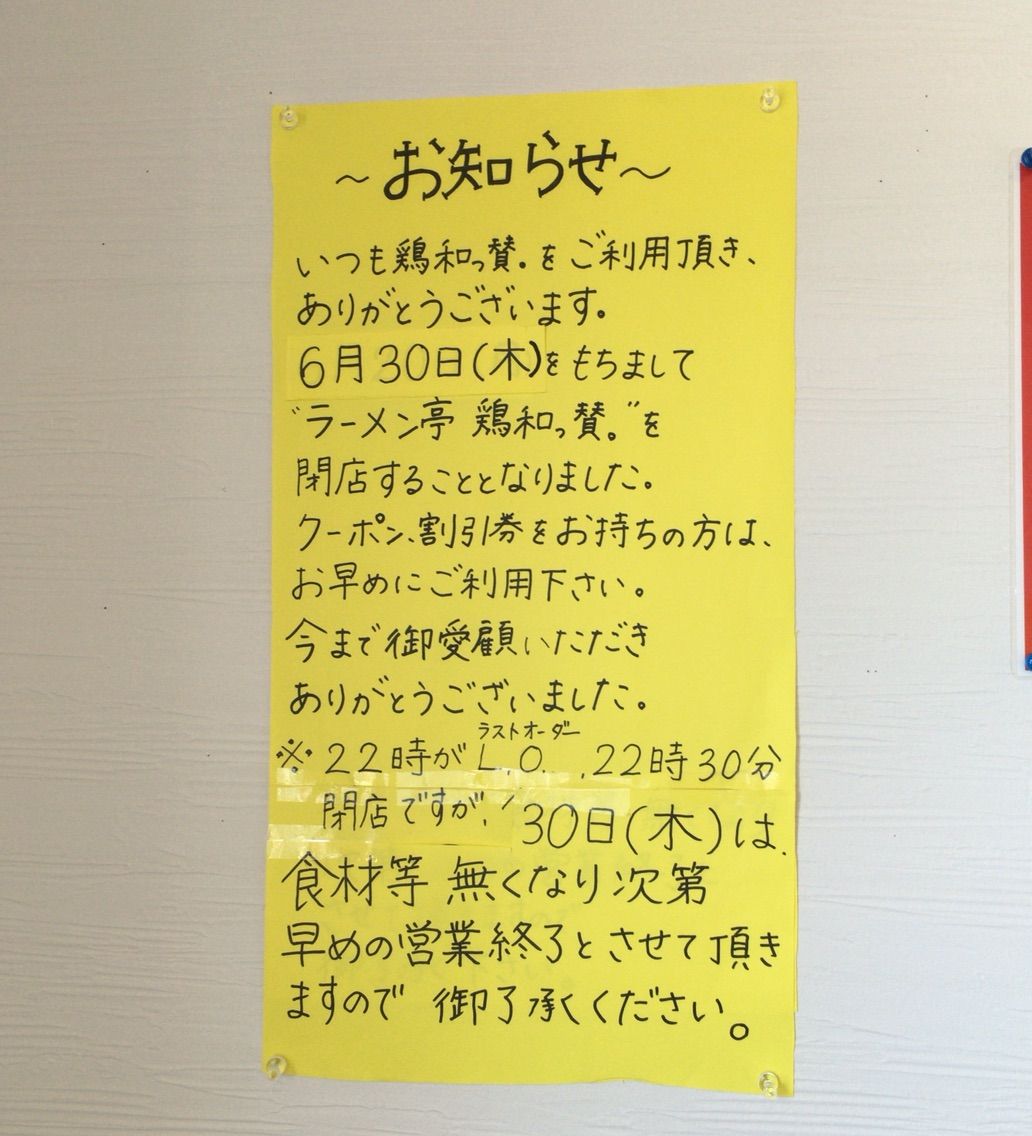 ～お知らせ～
いつも鶏和っ賛。をご利用頂き、
ありがとうございます。
6月30日(木)をもちまして
"ラーメン亭 鶏和っ賛。"を
閉店することとなりました。
クーポン、割引券をお持ちの方は、
お早めにご利用下さい。
今まで御愛顧いただき
ありがとうございました。
ラストオーダー
※22時がL.O. .22時30分
閉店ですが、30日(木)は、
食材等 無くなり次第
早めの営業終了とさせて頂き
ますので 御了承ください。